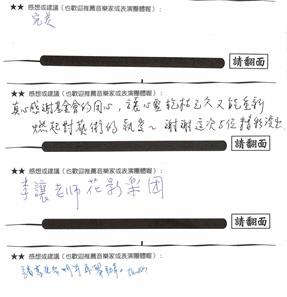 ★★ 感想或建議（也歡迎推薦音樂家或表演團體喔）：
完美
請翻面
★★ 感想或建議（也歡迎推薦音樂家或表演團體喔）：
真心感謝基金會的用心，讓心靈乾枯已久又能重新
燃起對藝術的熱愛～謝謝這次5位精彩演出
請翻面
★★ 感想或建議（也歡迎推薦音樂家或表演團體喔）：
李讓老師花影樂团
請翻面
★★ 感想或建議（也歡迎推薦音樂家或表演團體喔）：